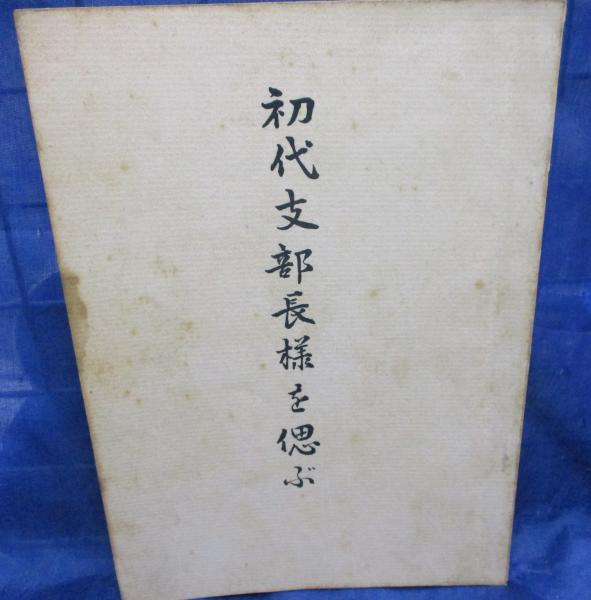 初代支部長様を偲ぶ